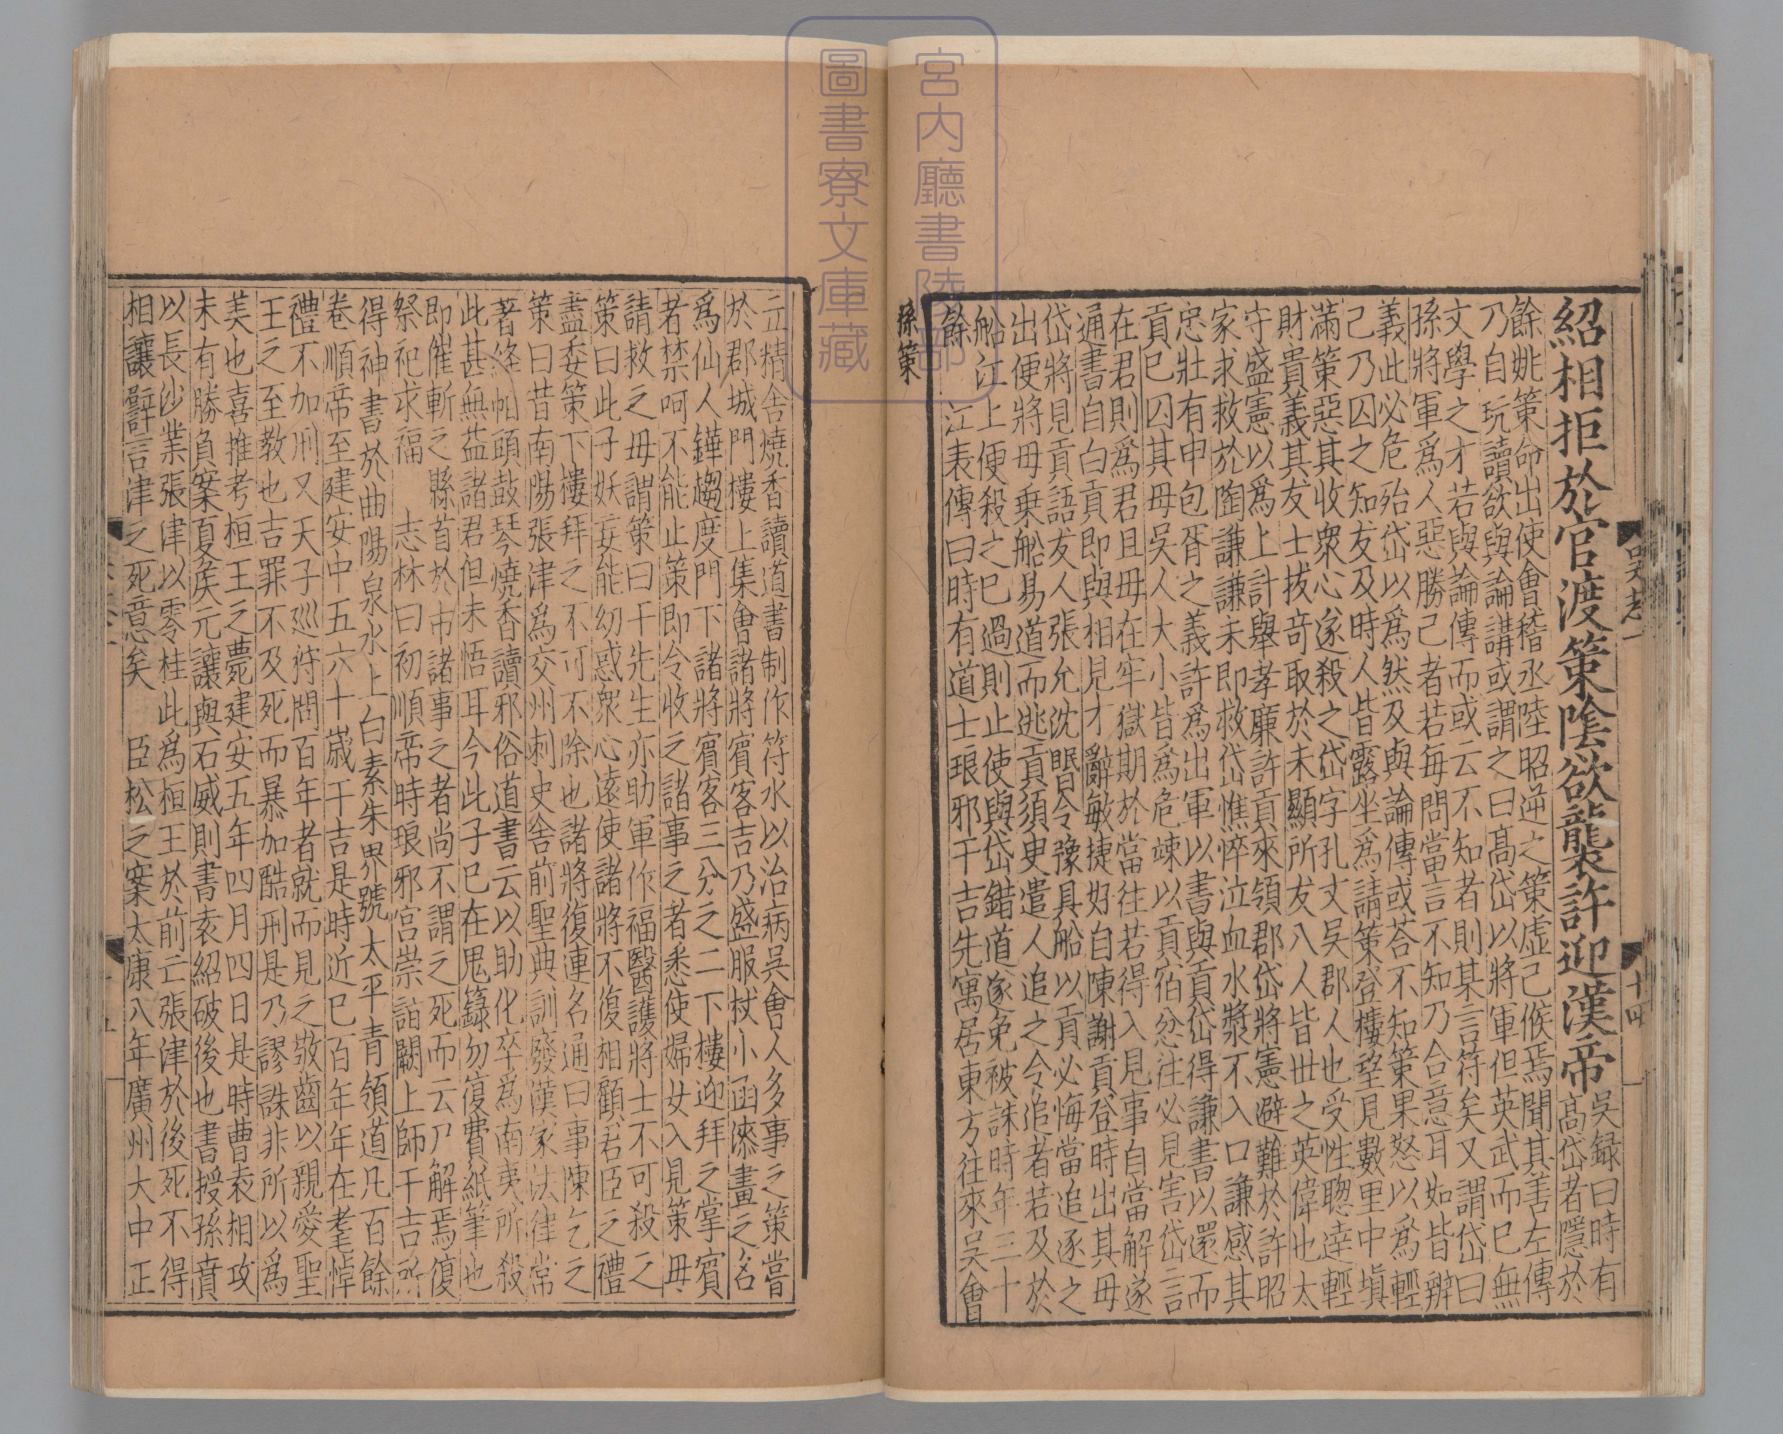 紹相拒於官渡策陰欲襲許迎漢帝吳録曰時有
高岱者隱於
餘姚策命出使會稽丞陸昭逆之策虛己候焉聞其善左傳
乃自玩讀欲與論講或謂之曰高岱以將軍但英武而已無
文學之才若與論傳而或云不知者則某言符矣又謂岱曰
孫將軍爲人惡勝己者若每問當言不知乃合意耳如皆辨
義此必危殆岱以爲然及與論傳或荅不知策果怒以爲輕
己乃囚之知友及時人皆露坐爲請策登樓望見數里中塡
滿策惡其收衆心遂殺之岱字孔文吳郡人也受性聰達輕
財貴義其友士拔奇取於未顯所友八人皆世之英偉也太
守盛憲以爲上計舉孝廉許貢來領郡岱將憲避難於許昭
家求救於陶謙謙未即救岱憔悴泣血水漿不入口謙感其
忠壯有申包胥之義許爲出軍以書與貢岱得謙書以還而
貢已囚其母吳人大小皆爲危竦以貢宿忿往必見害岱言
在君則爲君且母在牢獄期於當往若得入見事自當解遂
通書自白貢即與相見才辭敏捷好自陳謝貢登時出其母
岱將見貢語友人張允沈䁕令豫具船以貢必悔當追逐之
出便將母乗船易道而逃貢須史遣人追之令追者若及於
船江上便殺之已過則止使與岱錯道遂免被誅時年三十
餘 江表傳曰時有道士琅邪于吉先寓居東方往來吳會
孫策
立精舍燒香讀道書制作符水以治病吳會人多事之策嘗
於郡城門樓上集會諸將賓客吉乃盛服杖小函漆畫之名
爲仙人鏵趨度門下諸將賓客三分之二下樓迎拜之掌賓
者禁呵不能止策即令收之諸事之者悉使婦女入見策母
請救之母謂策曰于先生亦助軍作福醫護將士不可殺之
策曰此子妖妄能幻惑衆心遠使諸將不復相顧君臣之禮
盡委策下樓拜之不可不除也諸將復連名通曰事陳乞之
策曰昔南陽張津爲交州刺史舍前聖典訓廢漢家法律常
著絳帕頭鼓琴燒香讀邪俗道書云以助化卒爲南夷所殺
此甚無益諸君但未悟耳今此子已在鬼籙勿復費紙筆也
即催斬之縣首於市諸事之者尚不謂之死而云尸解焉復
祭祀求福 志林曰初順帝時琅邪宫崇詣闕上師于吉所
得神書於曲陽泉水上白素朱界號太平青領道凡百餘
卷順帝至建安中五六十歳于吉是時近已百年年在耄悼
禮不加刑又天子巡狩問百年者就而見之敬齒以親愛聖
王之至教也吉罪不及死而暴加酷刑是乃謬誅非所以爲
美也喜推考桓王之薨建安五年四月四日是時曹袁相攻
未有勝負案夏侯元讓與石威則書袁紹破後也書授孫賁
以長沙業張津以零桂此爲桓王於前亡張津於後死不得
相讓譬言津之死意矣 臣松之案太康八年廣州大中正
吳志一
十四
宮内廳書陵部
圖書寮文庫藏